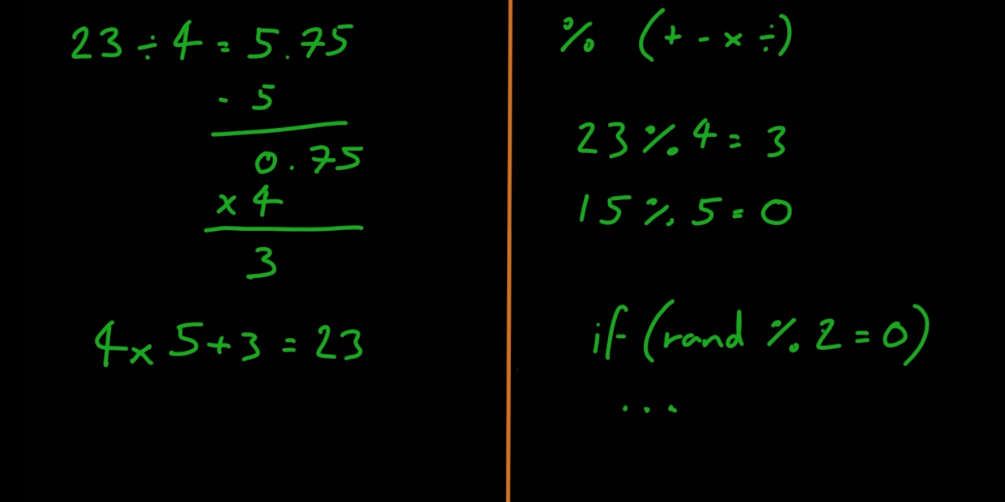 23 ÷ 4 = 5.75
- 5
0.75
x 4
3
4 x 5 + 3 = 23
% (+ - x ÷)
23 % 4 = 3
15 % 5 = 0
if (rand % 2 = 0)
...